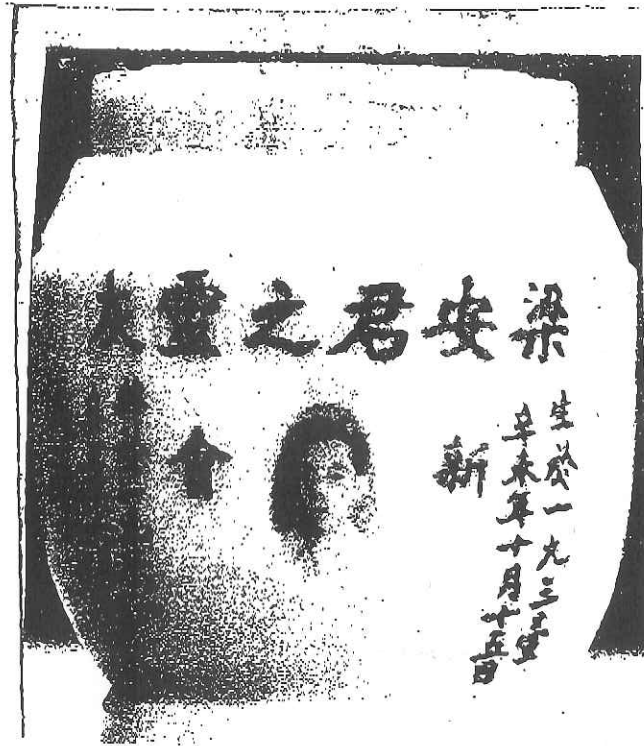 梁安君之靈
生於一九三壹
辛未年十月十五日
新會